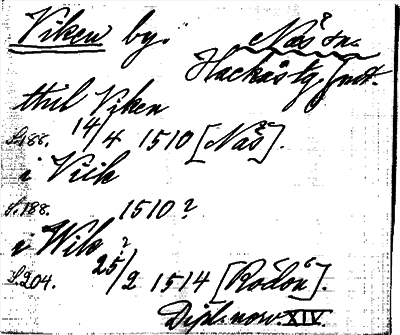 Viken by.
Näs sn.
Hackås tg, Jmtl.
thil Viken
S. 188. 14/4 1510 [Näs].
i Viik
S. 188. 1510?
i Wik?
S. 204. 25/2 1514 [Rödön].
Dipl. norv. XIV.